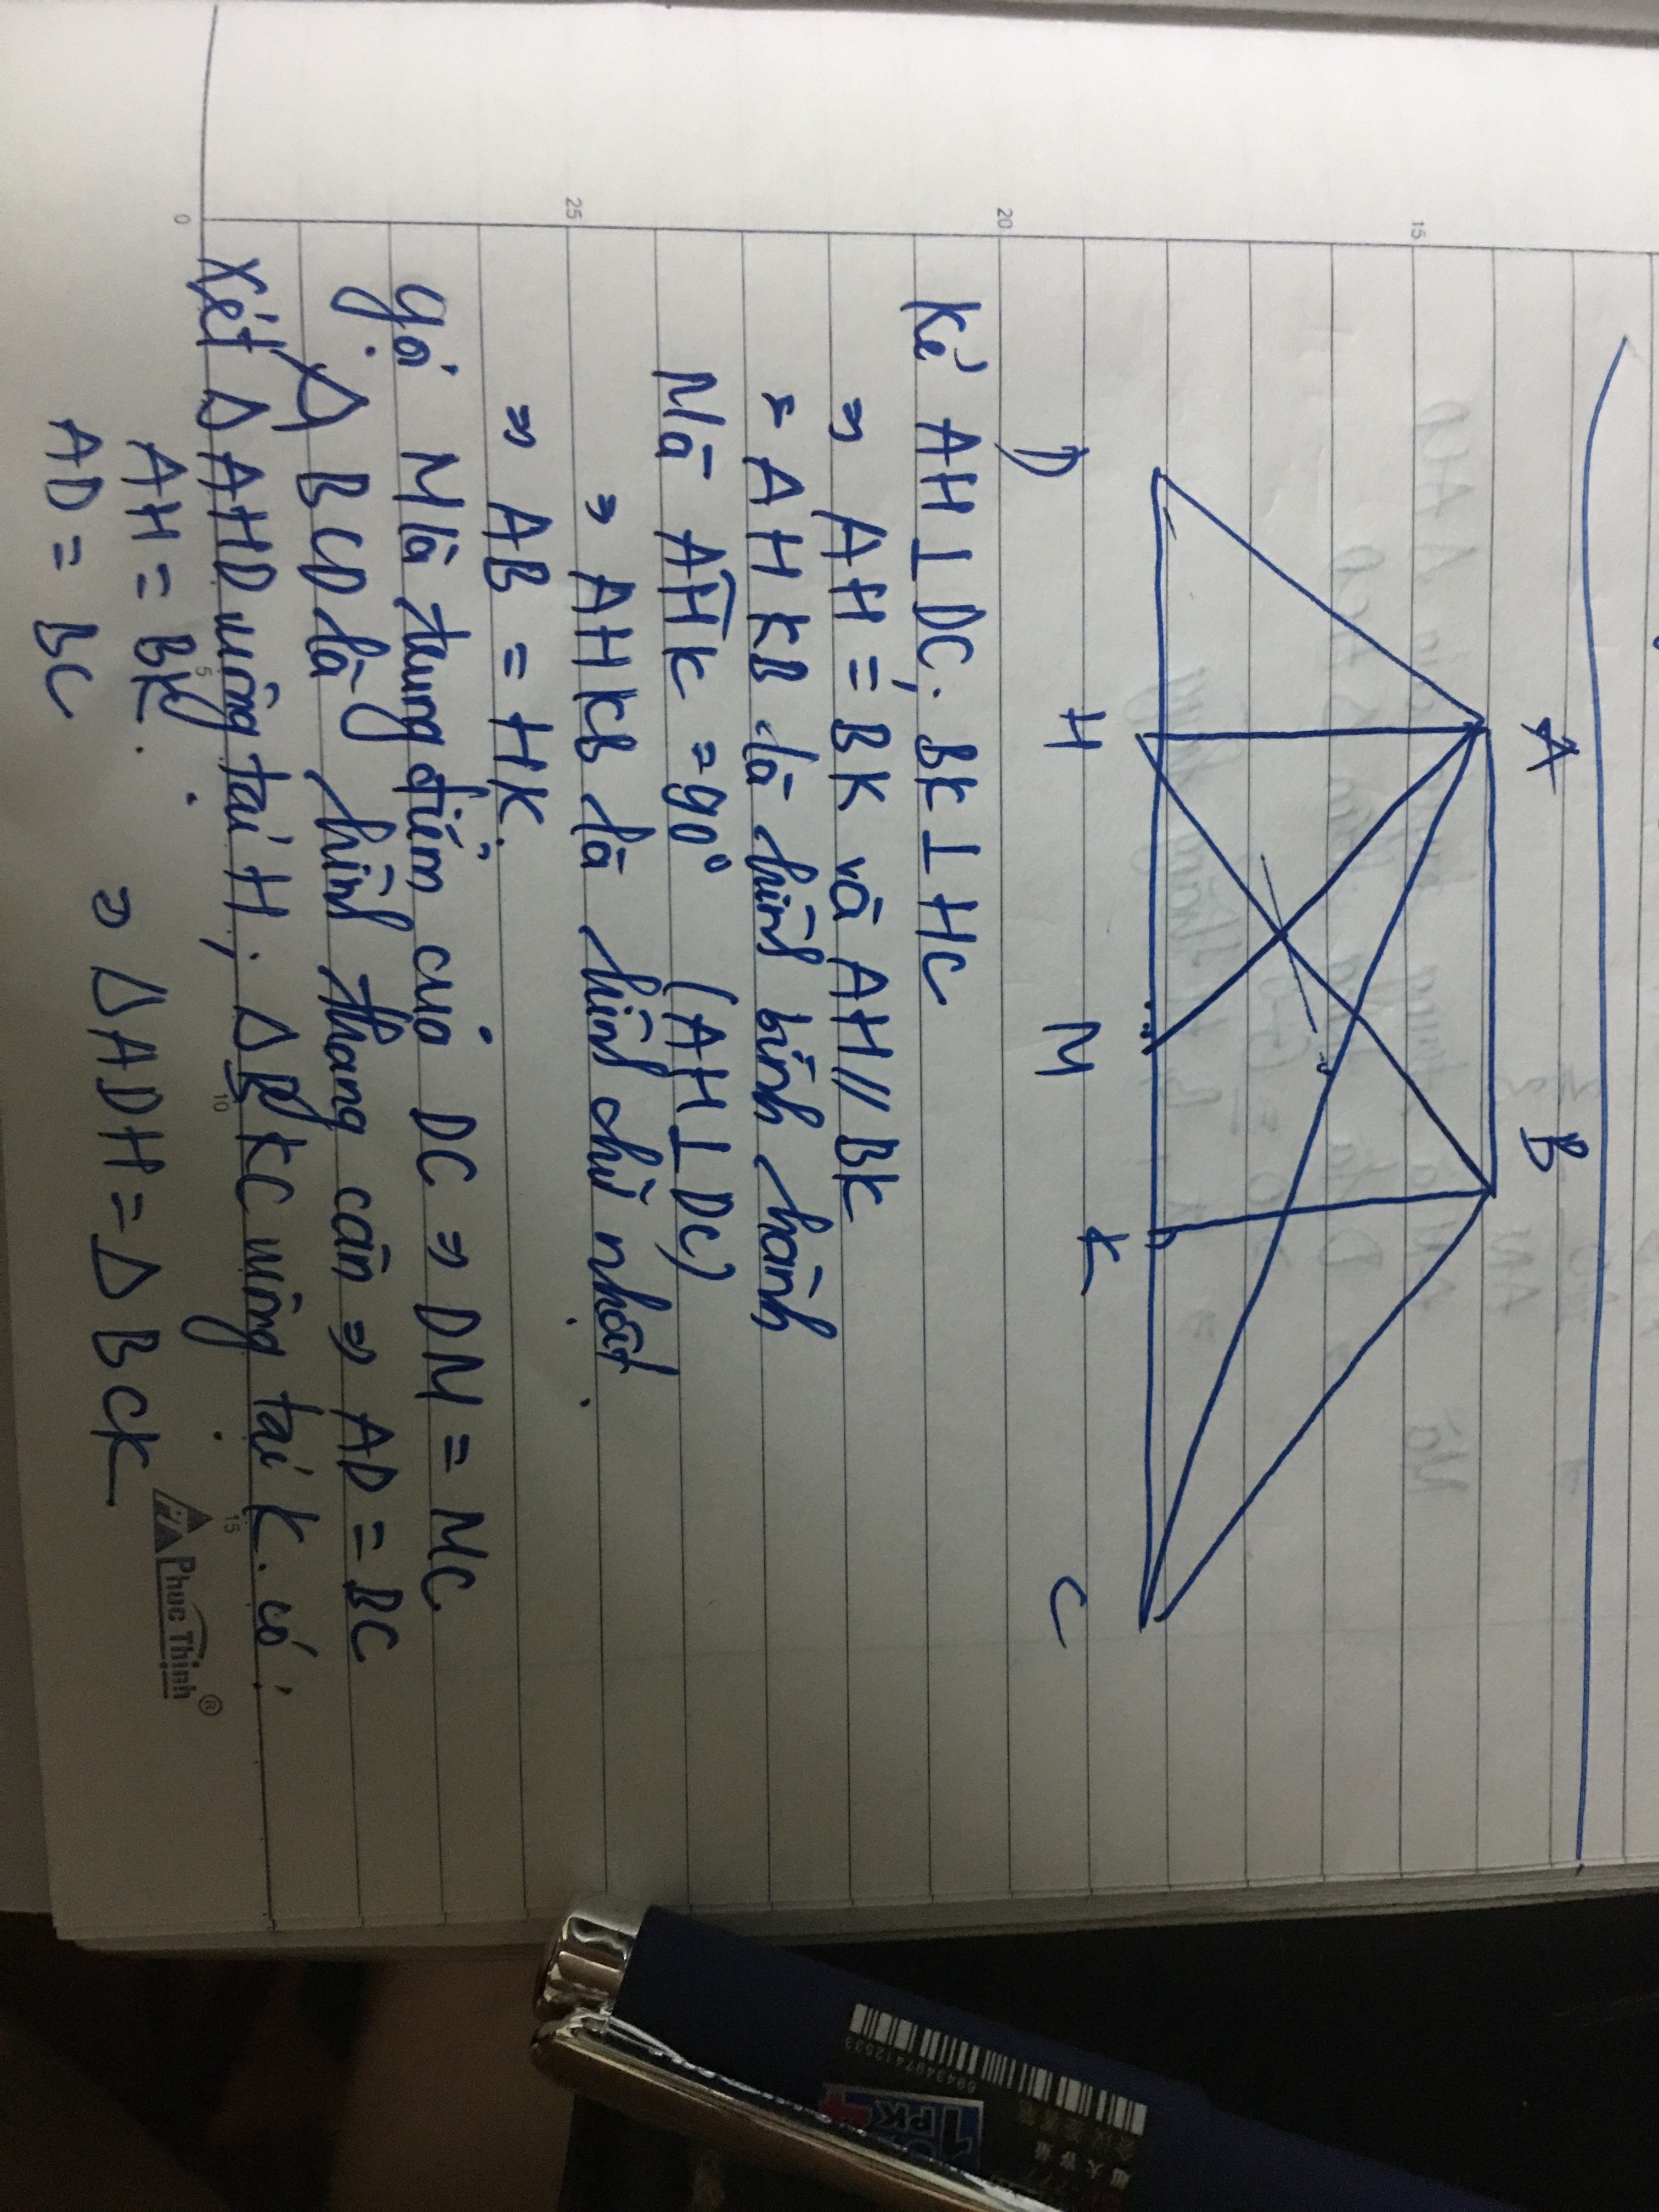 A
B
D
H
M
K
C
Kẻ AH ⊥ DC, BK ⊥ HC
⇒ AH = BK và AH // BK
= AHKB là hình bình hành
Mà AHK = 90° (AH ⊥ DC)
⇒ AHKB là hình chữ nhật.
⇒ AB = HK.
gọi M là trung điểm của DC ⇒ DM = MC
ABCD là hình thang cân ⇒ AD = BC
Xét Δ AHD vuông tại H, Δ BKC vuông tại K. có:
AH = BK.
AD = BC
⇒ Δ ADH = Δ BCK
Phuc Thinh ®
15
20
25
0
5
10
15
6943497412533
PK
777